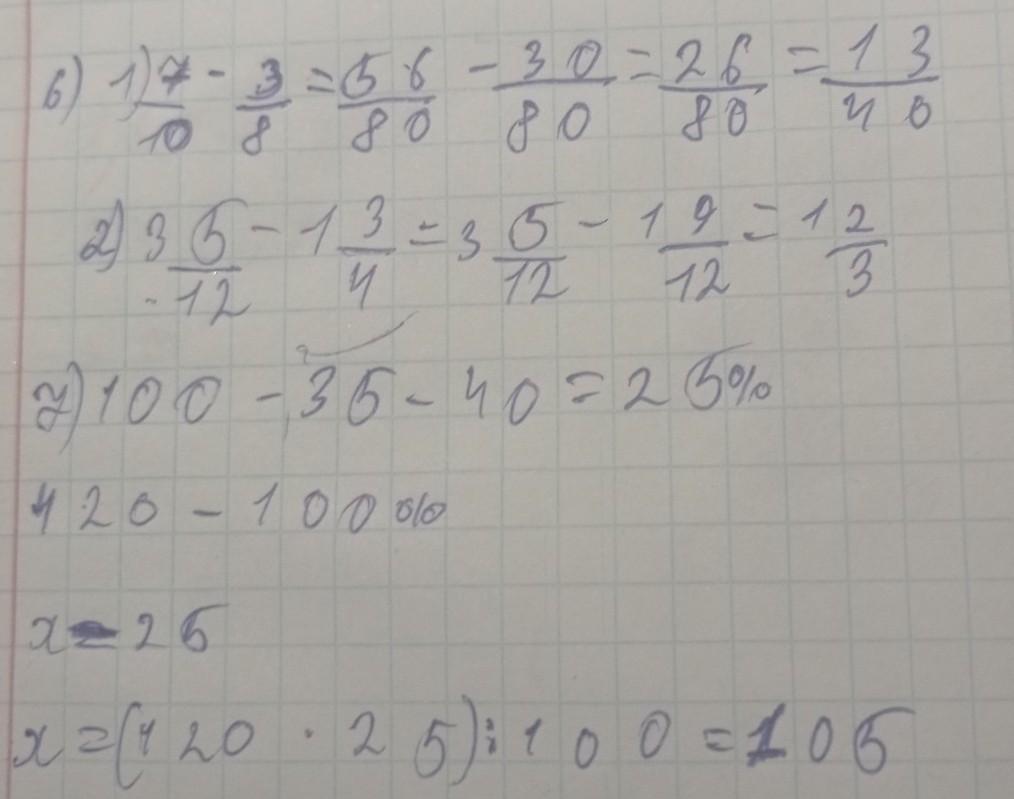 6) 1) 7/10 - 3/8 = 56/80 - 30/80 = 26/80 = 13/40
2) 3 5/12 - 1 3/4 = 3 5/12 - 1 9/12 = 1 2/3
7) 100 - 35 - 40 = 25%
420 - 100%
x - 25
x = (420 · 25) : 100 = 105